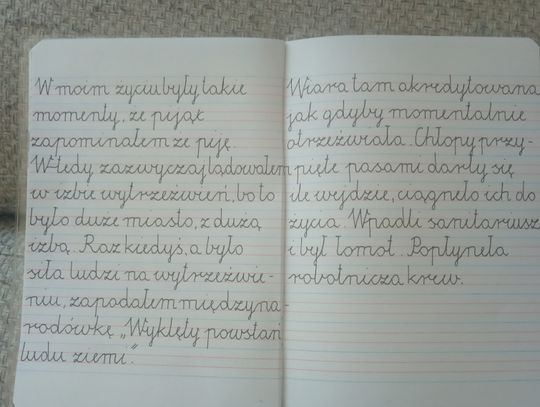 W moim życiu były takie
momenty, że pijąc
zapominałem że piję.
Wtedy zazwyczaj lądowałem
w izbie wytrzeźwień, bo to
było duże miasto, z dużą
izbą. Raz kiedyś, a było
siła ludzi na wytrzeźwie-
niu, zapodałem międzyna-
rodówkę „Wyklęty powstań
ludu ziemi”.
Wiara tam akredytowana
jak gdyby momentalnie
otrzeźwiała. Chłopy przy-
pięte pasami darły się
ile wejdzie, ciągnęło ich do
życia. Wpadli sanitariusz
i był łomot. Popłynęła
robotnicza krew.